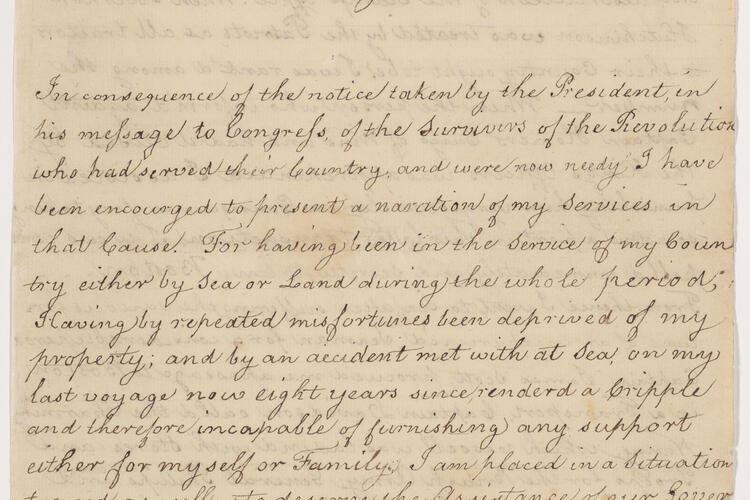 In consequence of the notice taken by the President, in
his message to Congress, of the Survivers of the Revolution
who had served their Country, and were now needy, I have
been encourged to present a naration of my Services in
that Cause. For having been in the Service of my Coun
try either by Sea or Land during the whole period;
Having by repeated misfortunes been deprived of my
property; and by an accident met with at Sea, on my
last voyage now eight years since, renderd a Cripple
and therefore incapable of furnishing any support
either for my self or Family; I am placed in a Situation
to deserve the Assistance of our Gover